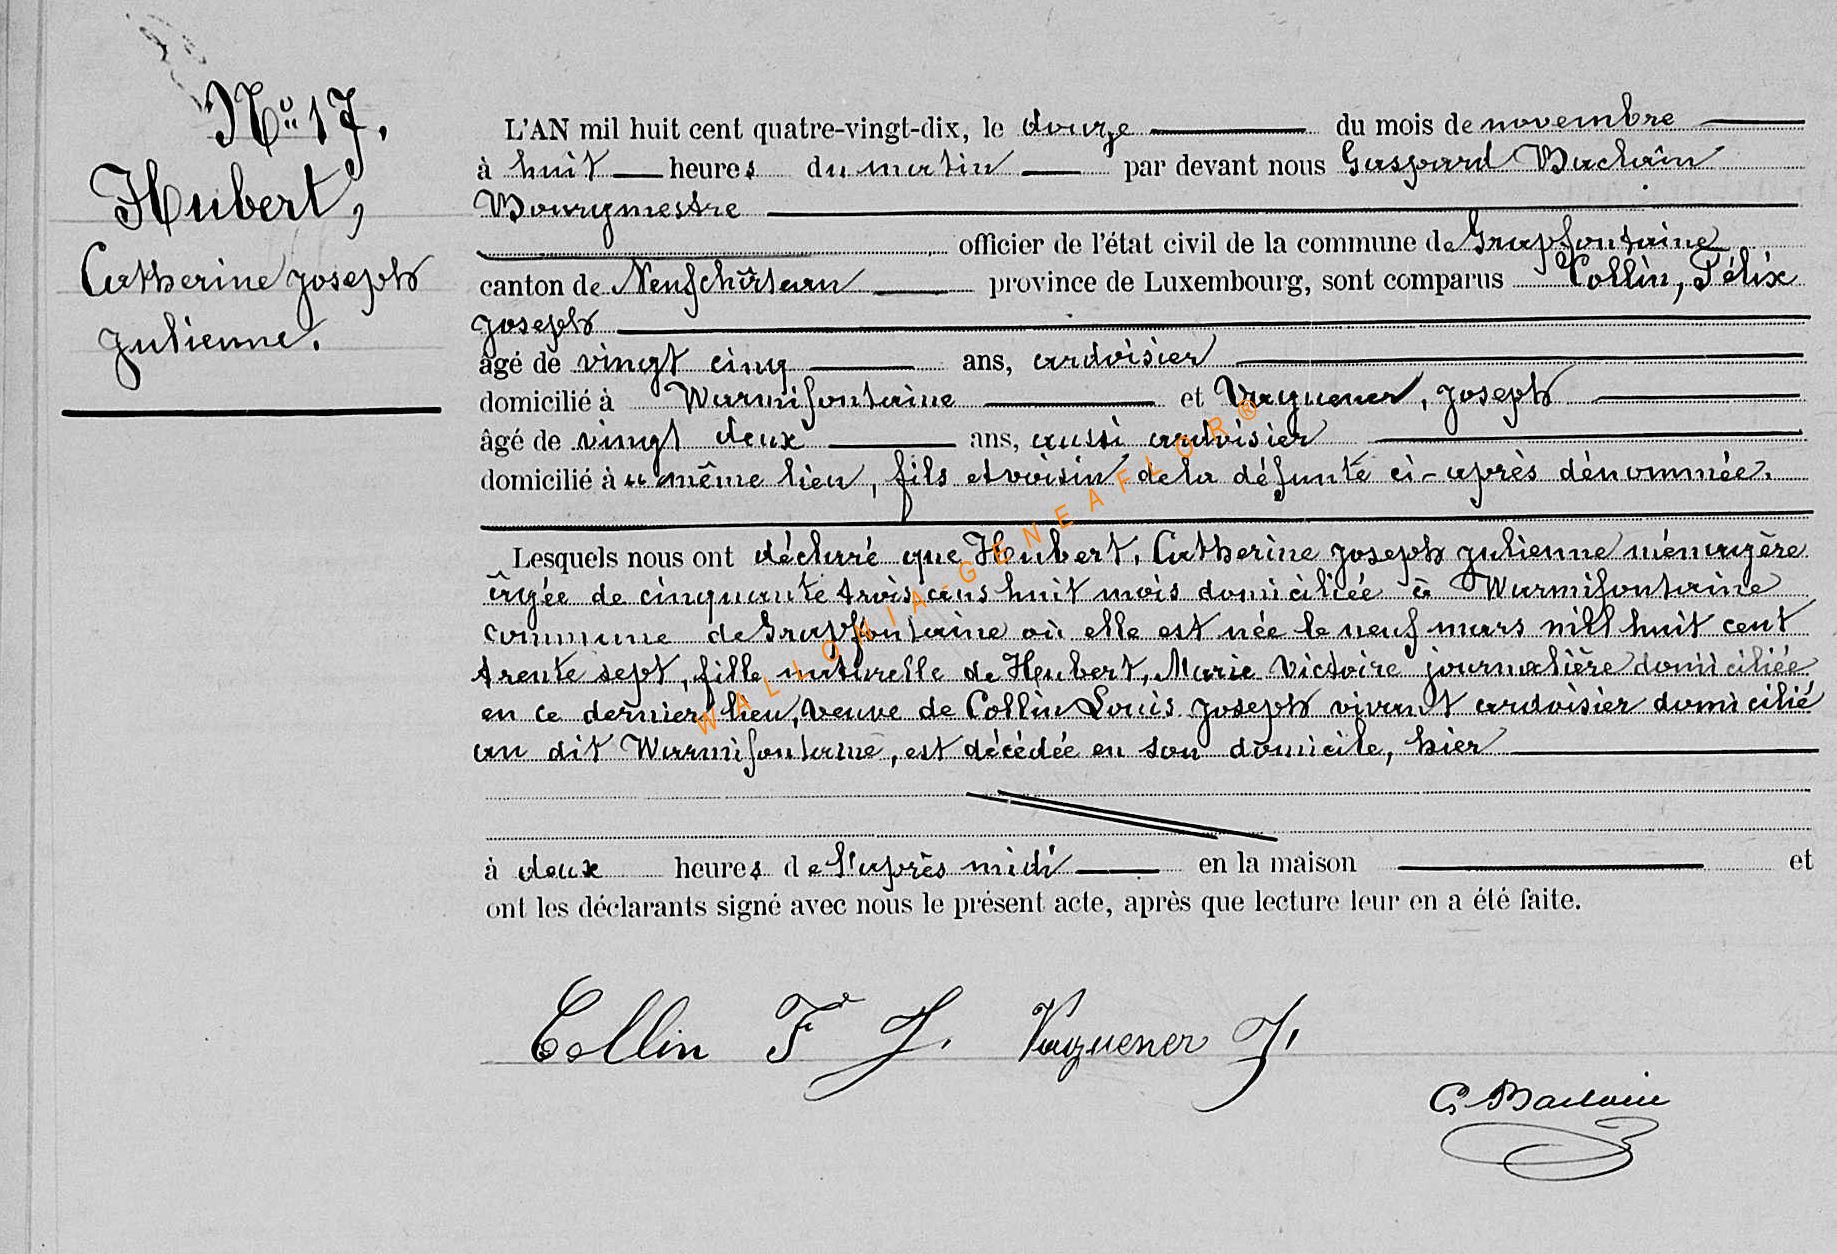 N° 17.
Hubert,
Catherine Joseph
Julienne.
L'AN mil huit cent quatre-vingt-dix, le douze du mois de novembre
à huit heures du matin par devant nous Gaspard Bachain
Bourgmestre
officier de l'état civil de la commune de Grapfontaine
canton de Neufchâteau province de Luxembourg, sont comparus Collin, Félix
Joseph
âgé de vingt cinq ans, ardoisier
domicilié à Warmifontaine et Vaguener, Joseph
âgé de vingt deux ans, aussi ardoisier
domicilié à u même lieu, fils et voisin de la défunte ci-après dénommée.
Lesquels nous ont déclaré que Hubert, Catherine Joseph Julienne ménagère
âgée de cinquante trois ans huit mois domiciliée à Warmifontaine
commune de Grapfontaine où elle est née le neuf mars mil huit cent
trente sept, fille naturelle de Hubert, Marie Victoire journalière domiciliée
en ce dernier lieu, veuve de Collin Louis Joseph vivant ardoisier domicilié
au dit Warmifontaine, est décédée en son domicile, hier
à deux heures de l'après midi en la maison et
ont les déclarants signé avec nous le présent acte, après que lecture leur en a été faite.
Collin F J. Vaguener J.
G. Bachain
WALLONIA-GENEAFLOR®